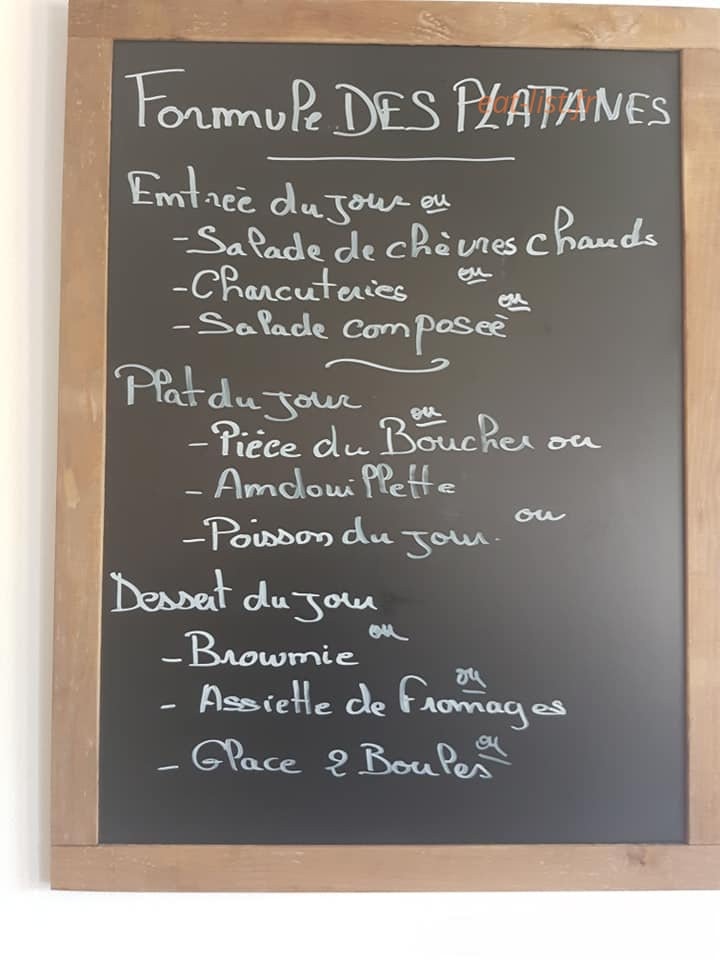 Formule DES PLATANES
eat-list.fr
Entrée du jour ou
- Salade de chèvres chauds
ou
- Charcuteries
ou
- Salade composée
Plat du jour
ou
- Pièce du Boucher ou
- Andouillette
ou
- Poisson du jour.
Dessert du jour
ou
- Brownie
ou
- Assiette de fromages
ou
- Glace 2 Boules